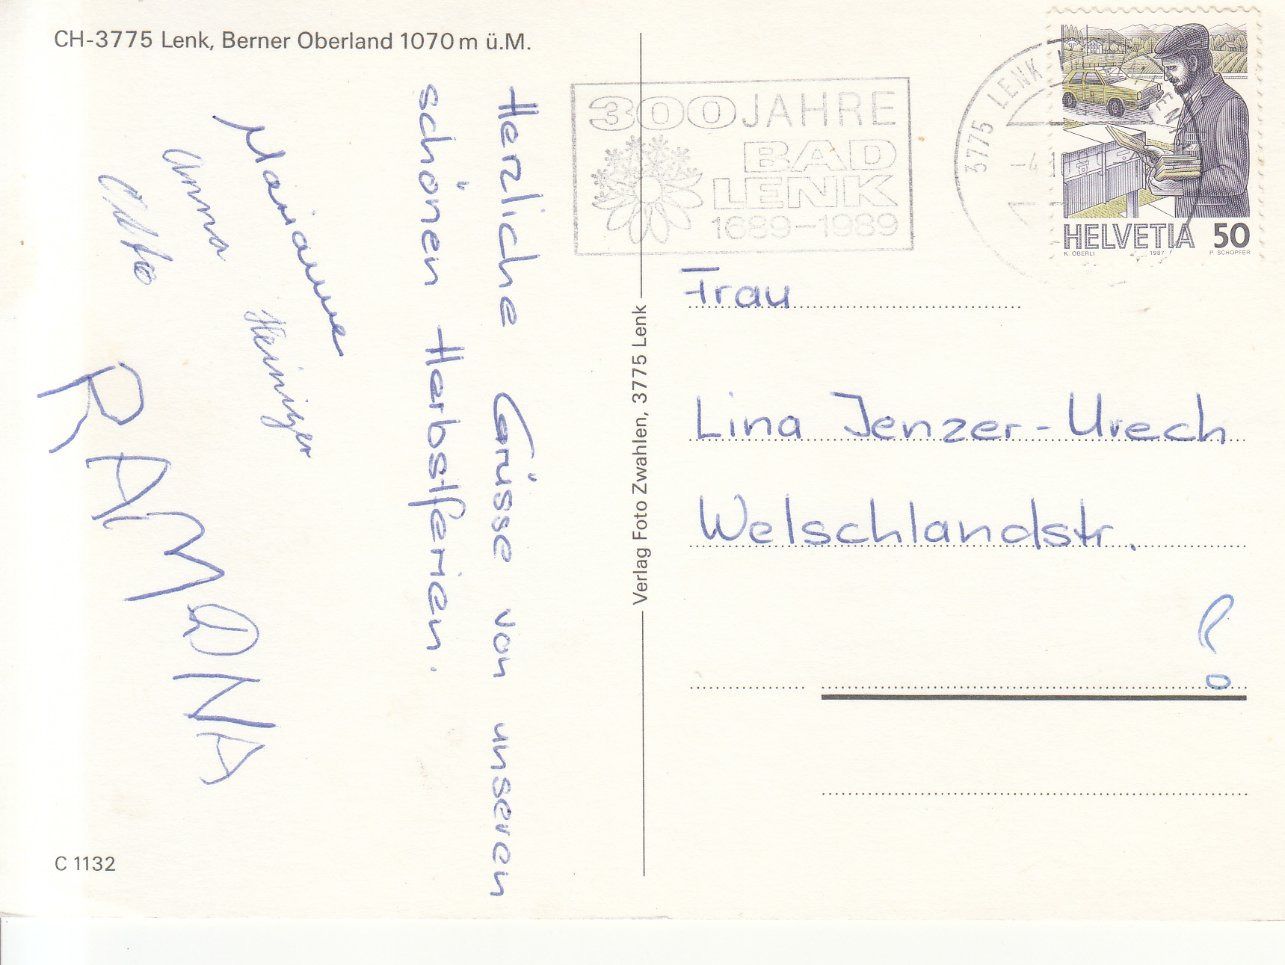 CH-3775 Lenk, Berner Oberland 1070 m ü.M.
Herzliche Grüsse von unseren
schönen Herbstferien.
Marianne
Anna Heiniger
Otto
RAMONA
C 1132
Verlag Foto Zwahlen, 3775 Lenk
300 JAHRE
BAD
LENK
1689-1989
3775 LENK
HELVETIA 50
K. OBERLI 1987 P. SCHOPFER
Frau
Lina Jenzer-Urech
Welschlandstr.
?